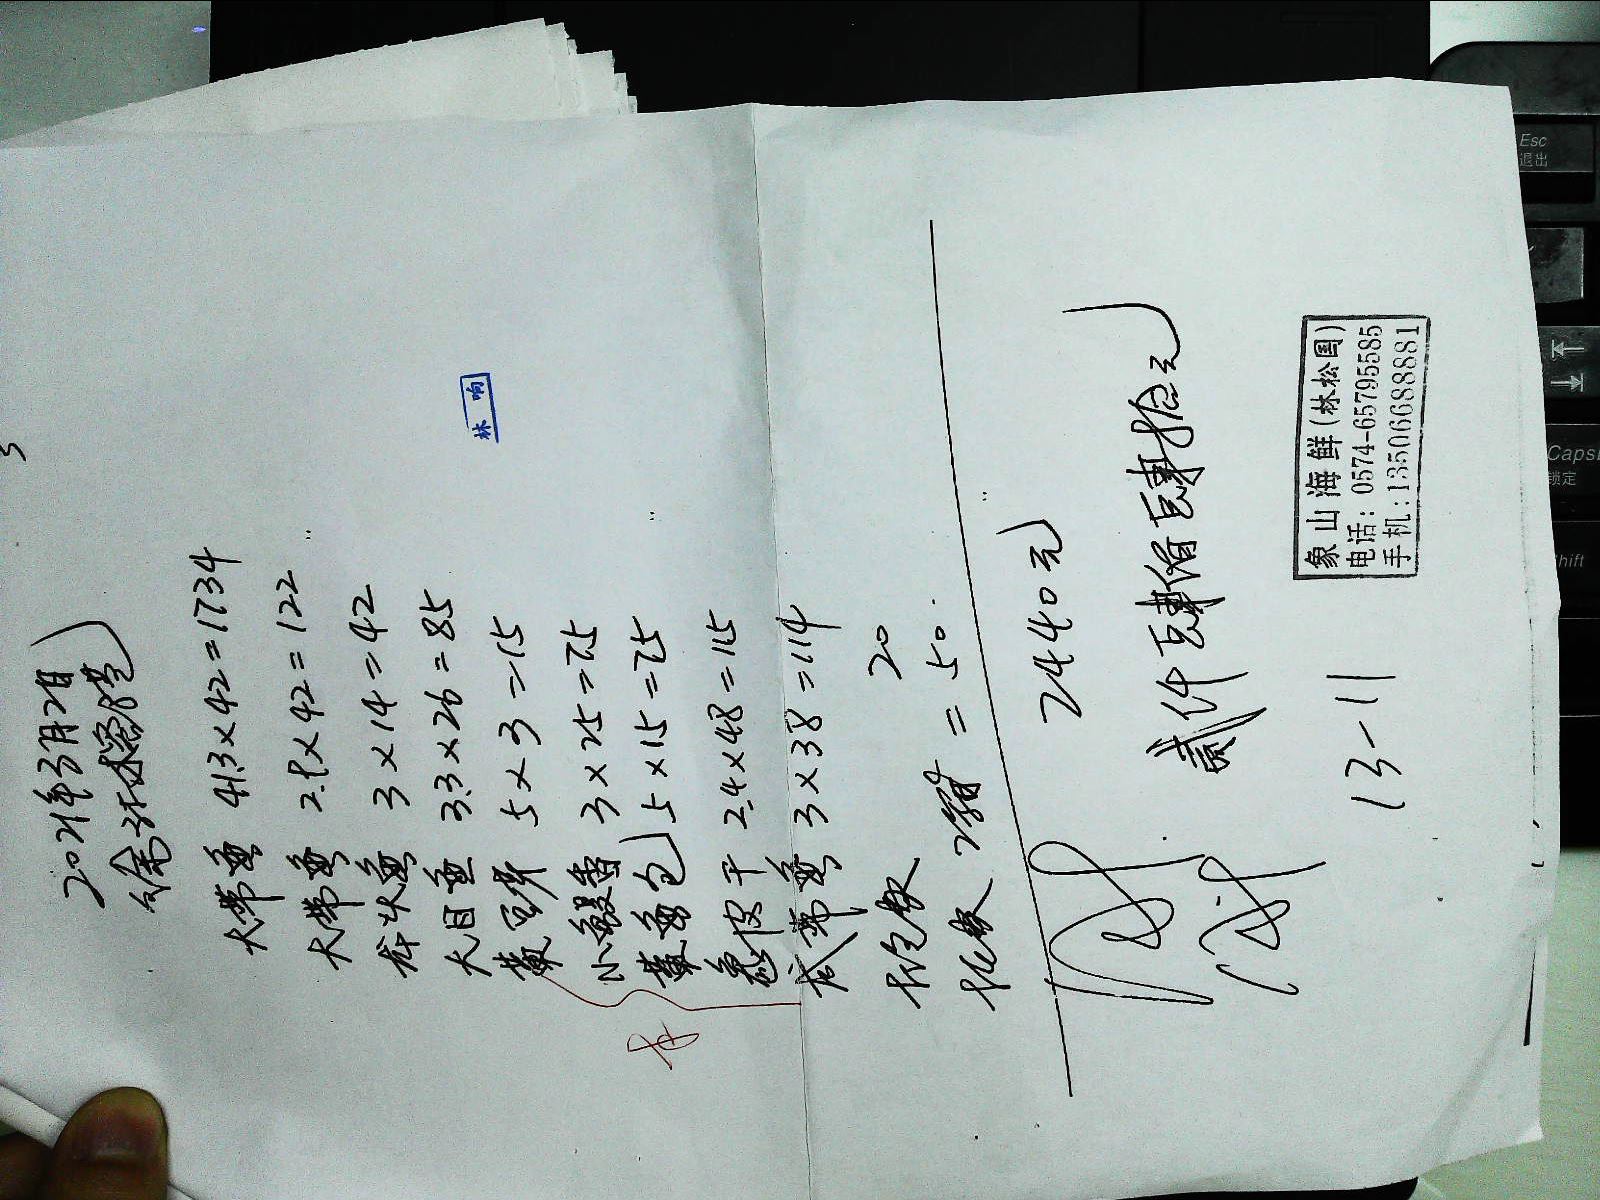 2021年3月2日
大带鱼 41.3×42=1734
大带鱼 2.9×42=122
龙头鱼 3×14=42
大目鱼 3.3×26=85
黄豆芽 5×3=15
小鳗鲞 3×25=75
黄鱼包 5×15=75
鱼皮干 2.4×48=115
带鱼 3×38=114
20
2箱=50
2440元
贰仟肆佰肆拾元
13-11
林响
象山海鲜(林松国)
电话:0574-65795585
手机:13506688881
Esc
退出
Caps
锁定
hift